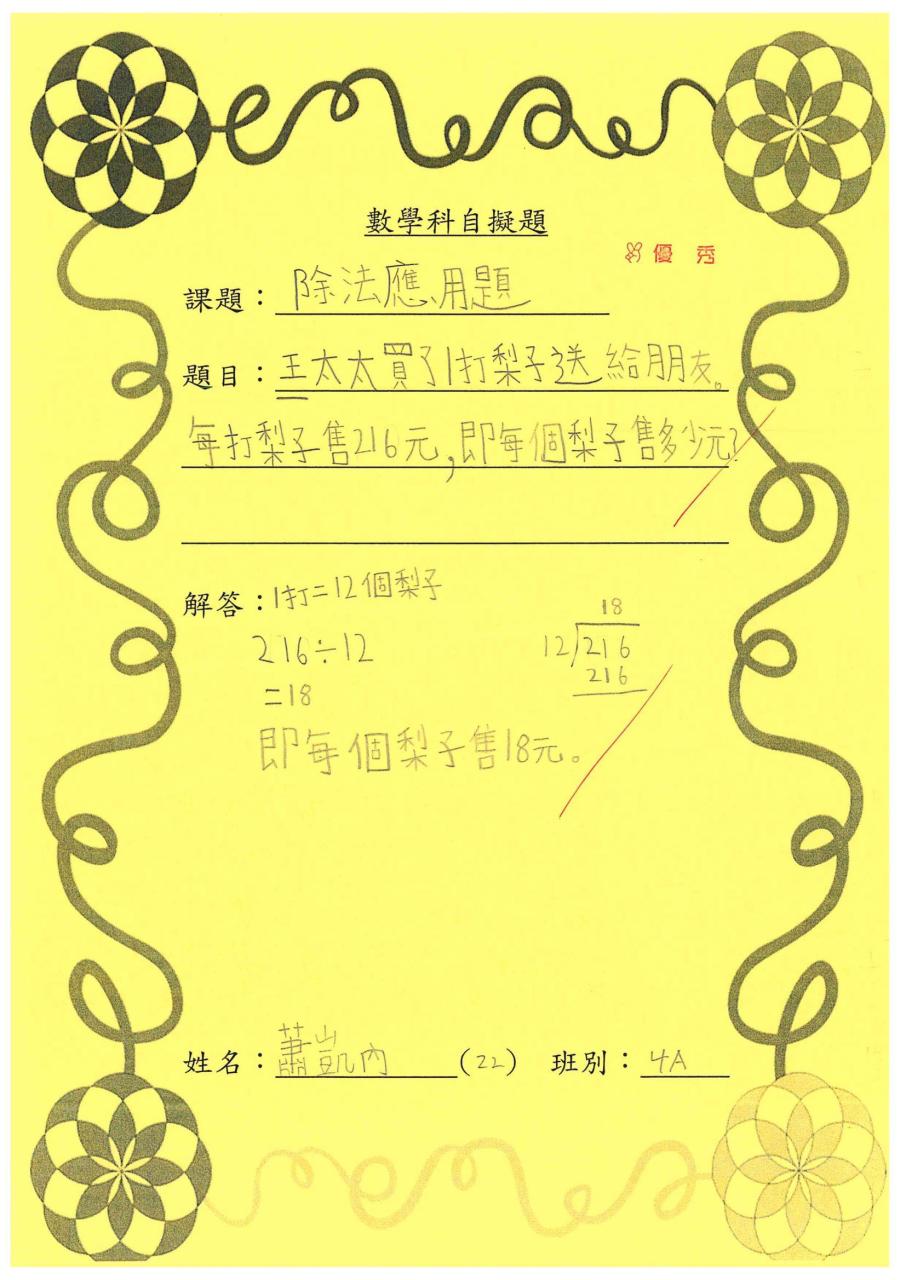 數學科自擬題
優秀
課題：除法應用題
題目：王太太買了1打梨子送給朋友。
每打梨子售216元，即每個梨子售多少元？
解答：1打=12個梨子
216÷12
=18
18
12)216
216
即每個梨子售18元。
姓名：蕭凱內 (22) 班別：4A